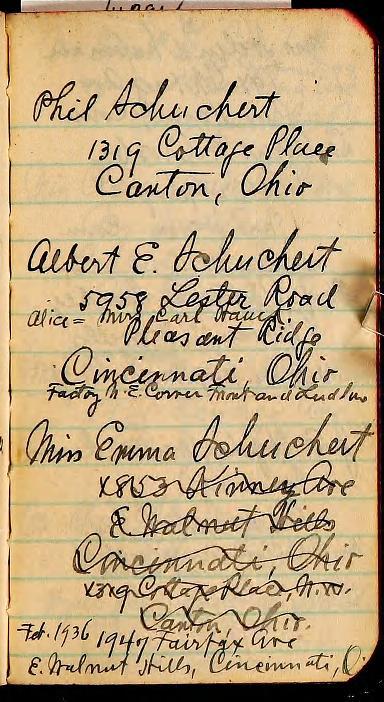 Phil Schuchert
1319 Cottage Place
Canton, Ohio
Albert E. Schuchert
5958 Lester Road
Alice = Mrs. Carl
Pleasant Ridge
Cincinnati, Ohio
Factory N.E. Corner Front and Ludlow
Miss Emma Schuchert
x853 Kinney Ave
E. Walnut Hills
Cincinnati, Ohio
x1319 Cottage Place, N.W.
Canton, Ohio.
Feb. 1936 1947 Fairfax Ave
E. Walnut Hills, Cincinnati, O.